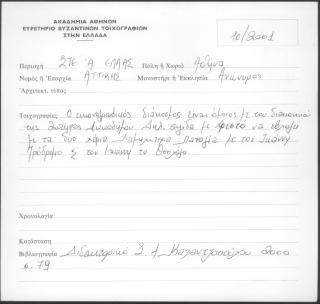 ΑΚΑΔΗΜΙΑ ΑΘΗΝΩΝ
ΕΥΡΕΤΗΡΙΟ ΒΥΖΑΝΤΙΝΩΝ ΤΟΙΧΟΓΡΑΦΙΩΝ
ΣΤΗΝ ΕΛΛΑΔΑ
10/2001
Περιοχή ΣΤΕΡΕΑ ΕΛΛΑΣ Πόλη ή Χωριό Αθήνα
Νομός ή Επαρχία ΑΤΤΙΚΗΣ Μοναστήρι ή Εκκλησία
Αρχιτεκτ. τύπος
Τοιχογραφίες Ο εικονογραφικός διάκοσμος είναι όμοιος με του διακονικού
της με Χριστό να
με τα δυο χέρια Χαμηλότερα με τον Ιωάννη
Πρόδρομο & τον Ιωάννη το Θεολόγο
Χρονολογία
Κατάσταση
Βιβλιογραφία Διδακτορικό Σ. Καλαντζοπούλου 2000
σ. 79